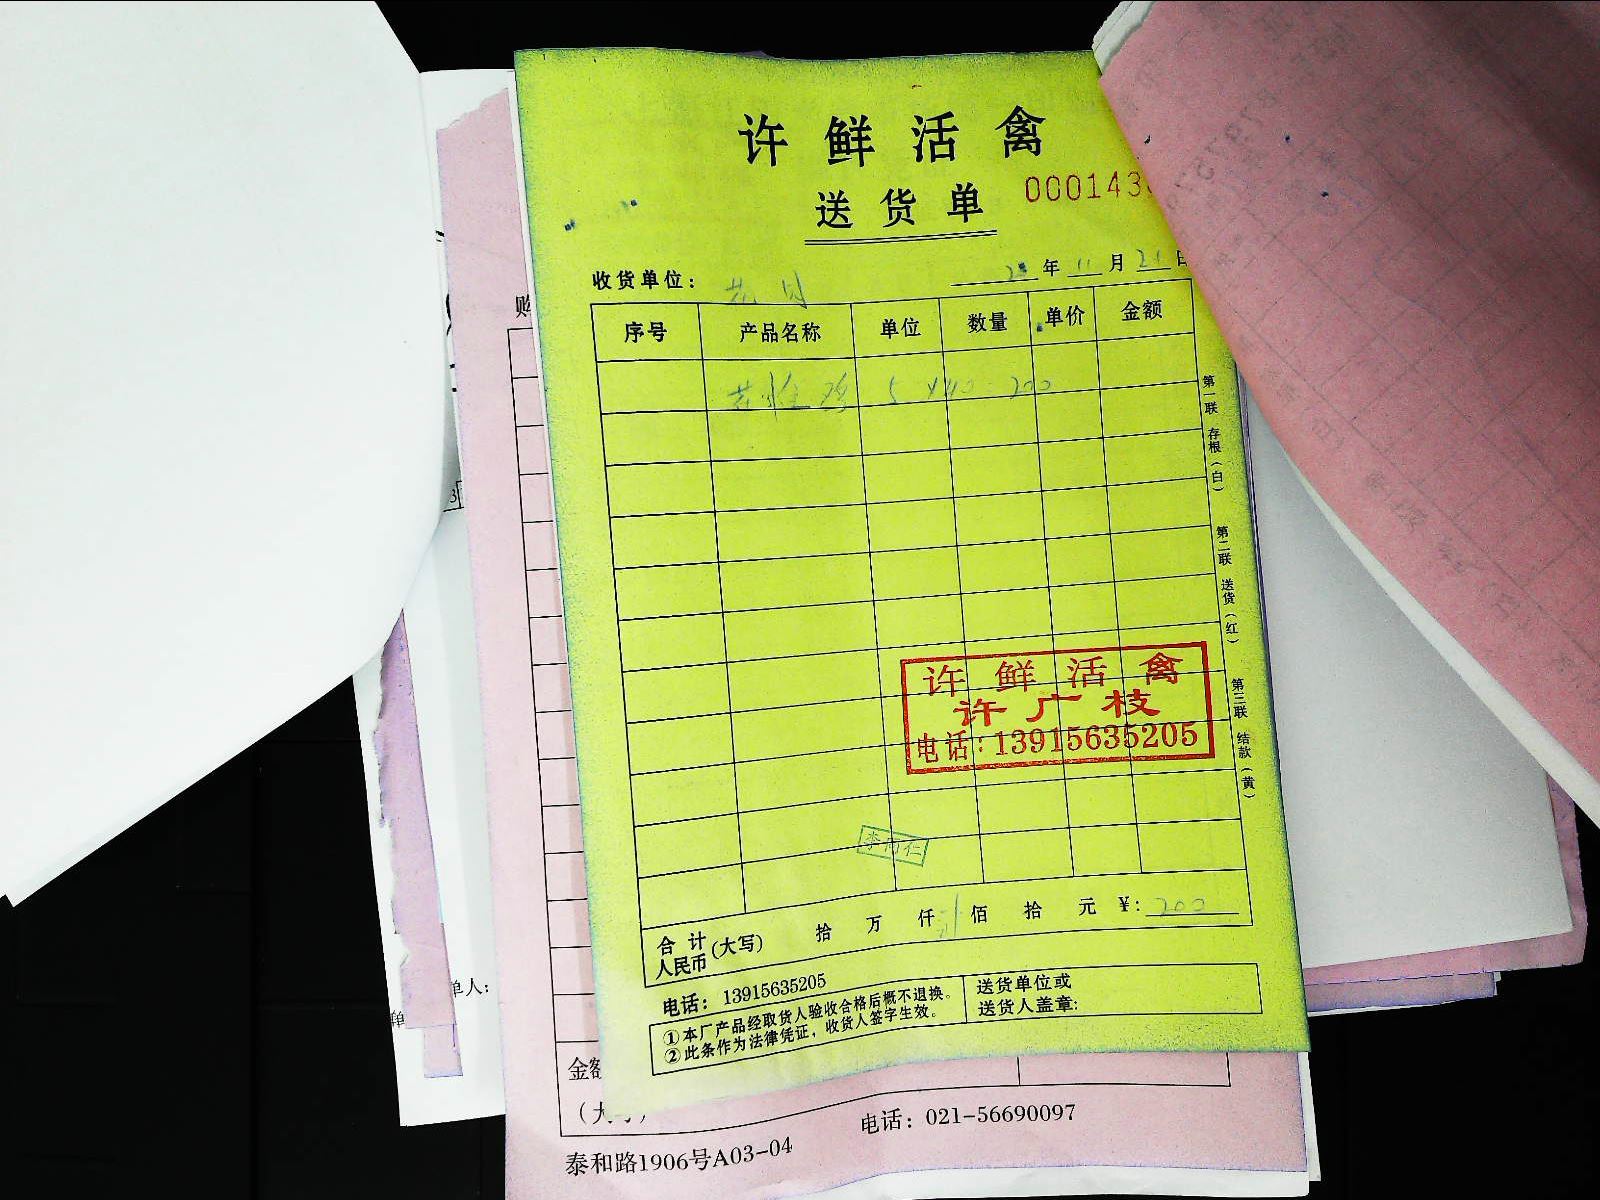 许鲜活禽
送货单
000143
收货单位：
年 11 月 21 日
序号 产品名称 单位 数量 单价 金额
5 × 40 200
第一联 存根（白）
第二联 送货（红）
第三联 结款（黄）
许鲜活禽
许广枝
电话：13915635205
合计人民币(大写) 拾 万 仟 佰 拾 元 ¥：200
电话：13915635205
①本厂产品经取货人验收合格后概不退换。
②此条作为法律凭证，收货人签字生效。
送货单位或
送货人盖章：
购
单人：
金额
（大写）
电话：021-56690097
泰和路1906号A03-04